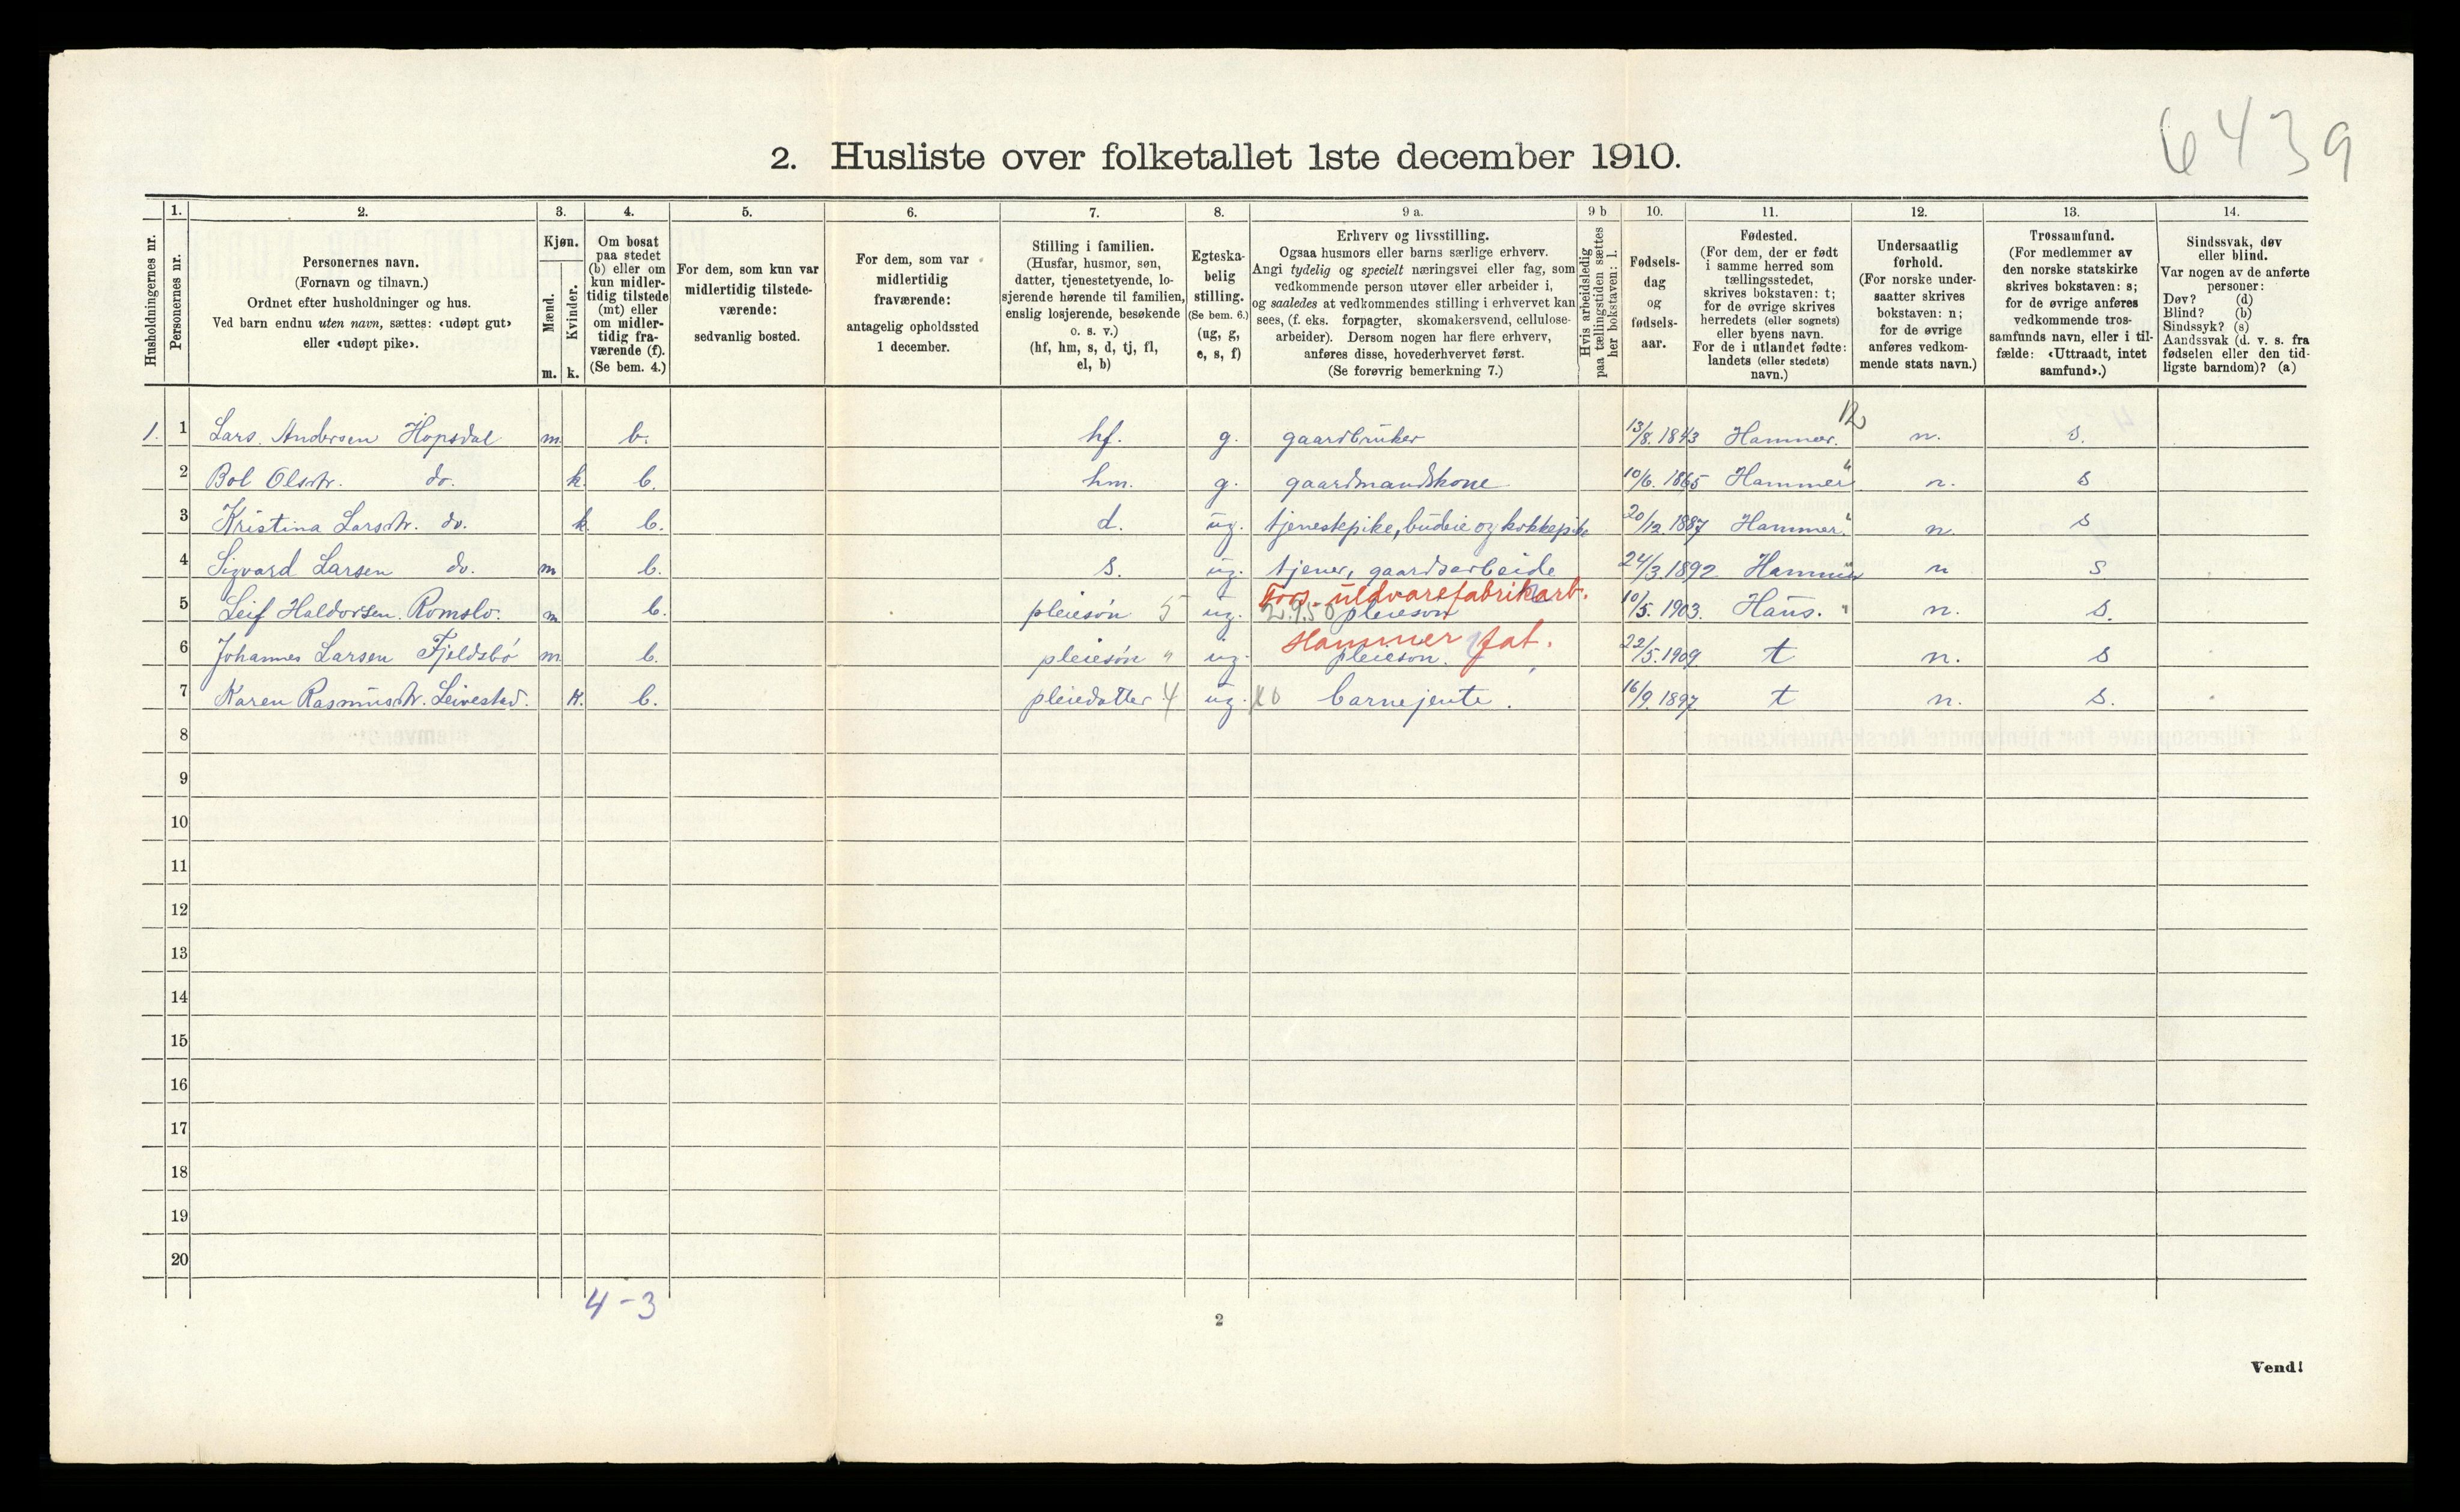 6439
2. Husliste over folketallet 1ste december 1910.
Husholdningernes nr.
1.
Personernes nr.
2.
Personernes navn.
(Fornavn og tilnavn.)
Ordnet efter husholdninger og hus.
Ved barn endnu uten navn, sættes: «udøpt gut»
eller «udøpt pike».
3.
Kjøn.
Mænd.
Kvinder.
m. k.
4.
Om bosat
paa stedet
(b) eller om
kun midler-
tidig tilstede
(mt) eller
om midler-
tidig fra-
værende (f).
(Se bem. 4.)
5.
For dem, som kun var
midlertidig tilstede-
værende:
sedvanlig bosted.
6.
For dem, som var
midlertidig
fraværende:
antagelig opholdssted
1 december.
7.
Stilling i familien.
(Husfar, husmor, søn,
datter, tjenestetyende, lo-
sjerende hørende til familien,
enslig losjerende, besøkende
o. s. v.)
(hf, hm, s, d, tj, fl,
el, b)
8.
Egteska-
belig
stilling.
(Se bem. 6.)
(ug, g,
e, s, f)
9 a.
Erhverv og livsstilling.
Ogsaa husmors eller barns særlige erhverv.
Angi tydelig og specielt næringsvei eller fag, som
vedkommende person utøver eller arbeider i,
og saaledes at vedkommendes stilling i erhvervet kan
sees, (f. eks. forpagter, skomakersvend, cellulose-
arbeider). Dersom nogen har flere erhverv,
anføres disse, hovederhvervet først.
(Se forøvrig bemerkning 7.)
9 b
Hvis arbeidsledig
paa tællingstiden sættes
her bokstaven: l.
10.
Fødsels-
dag
og
fødsels-
aar.
11.
Fødested.
(For dem, der er født
i samme herred som
tællingsstedet,
skrives bokstaven: t;
for de øvrige skrives
herredets (eller sognets)
eller byens navn.
For de i utlandet fødte:
landets (eller stedets)
navn.)
12.
Undersaatlig
forhold.
(For norske under-
saatter skrives
bokstaven: n;
for de øvrige
anføres vedkom-
mende stats navn.)
13.
Trossamfund.
(For medlemmer av
den norske statskirke
skrives bokstaven: s;
for de øvrige anføres
vedkommende tros-
samfunds navn, eller i til-
fælde: «Uttraadt, intet
samfund».)
14.
Sindssvak, døv
eller blind.
Var nogen av de anførte
personer:
Døv? (d)
Blind? (b)
Sindssyk? (s)
Aandssvak (d. v. s. fra
fødselen eller den tid-
ligste barndom)? (a)
12
1. 1 Lars Andersen Hopsdal m. b. hf. g. gaardbruker 13/8. 1843 Hammer. n. s.
2 Bol Olsdtr. do. k. b. hm. g. gaardmandskone 10/6. 1865 Hammer " n. s
3 Kristina Larsdtr. do. k. b. d. ug. tjenestepike, budeie og kokkepike 20/12. 1887 Hammer. " n. s
4 Sigvard Larsen do. m b. s. ug. tjener, gaardsarbeide 24/3. 1892 Hammer n s
Fors. uldvarefabrikarb.
5 Leif Haldorsen Romslo. m b. pleiesøn 5 ug. pleiesøn 10/5. 1903. Haus. " n. s.
Hammer fat.
6 Johannes Larsen Fjeldsbø m b. pleiesøn " ug. pleiesøn. 22/5. 1909 t n. s
7 Karen Rasmusdtr. Leivestad. k. b. pleiedatter 4 ug. barnejente. 16/9. 1897 t n. s.
8
9
10
11
12
13
14
15
16
17
18
19
20
4-3
2
Vend!